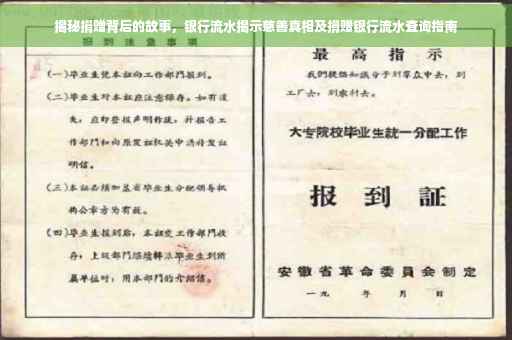 揭秘捐赠背后的故事，银行流水揭示慈善真相及捐赠银行流水查询指南
报到注意事项
(一)毕业生凭本证向工作部门报到。
(二)毕业生对本证应注意保存。如有遗
失，应即登报声明作废，并报告工
作部门和向原发证机关申请补发证
明信。
(三)本证必须加盖省毕业生分配领导机
构公章方为有效。
(四)毕业生报到后，本证交工作部门收
存；上级部门继续
毕业生到所
属单位时，用本部门的介绍信。
最高指示
我们提倡知识分子到群众中去，到
工厂去，到农村去。
大专院校毕业生统一分配工作
报到证
安徽省革命委员会制定
一九 年 月 日